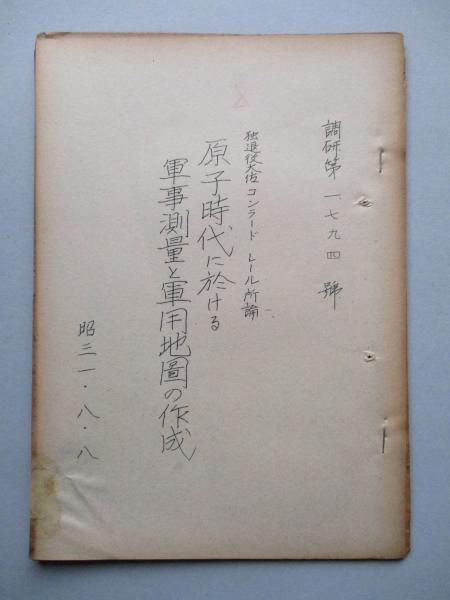 調研第一七九四號
独退役大佐コンラード レール所論
原子時代に於ける
軍事測量と軍用地圖の作成
昭三一・八・八